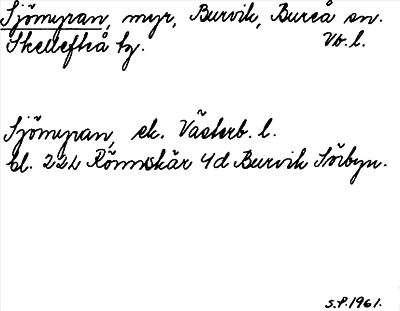 Sjömyran, myr, Burvik, Bureå sn.
Skellefteå tg. Vb. l.
Sjömyran, ek. Västerb. l.
bl. 22L Rönnskär 4d Burvik Sörbyn.
S.P. 1961.